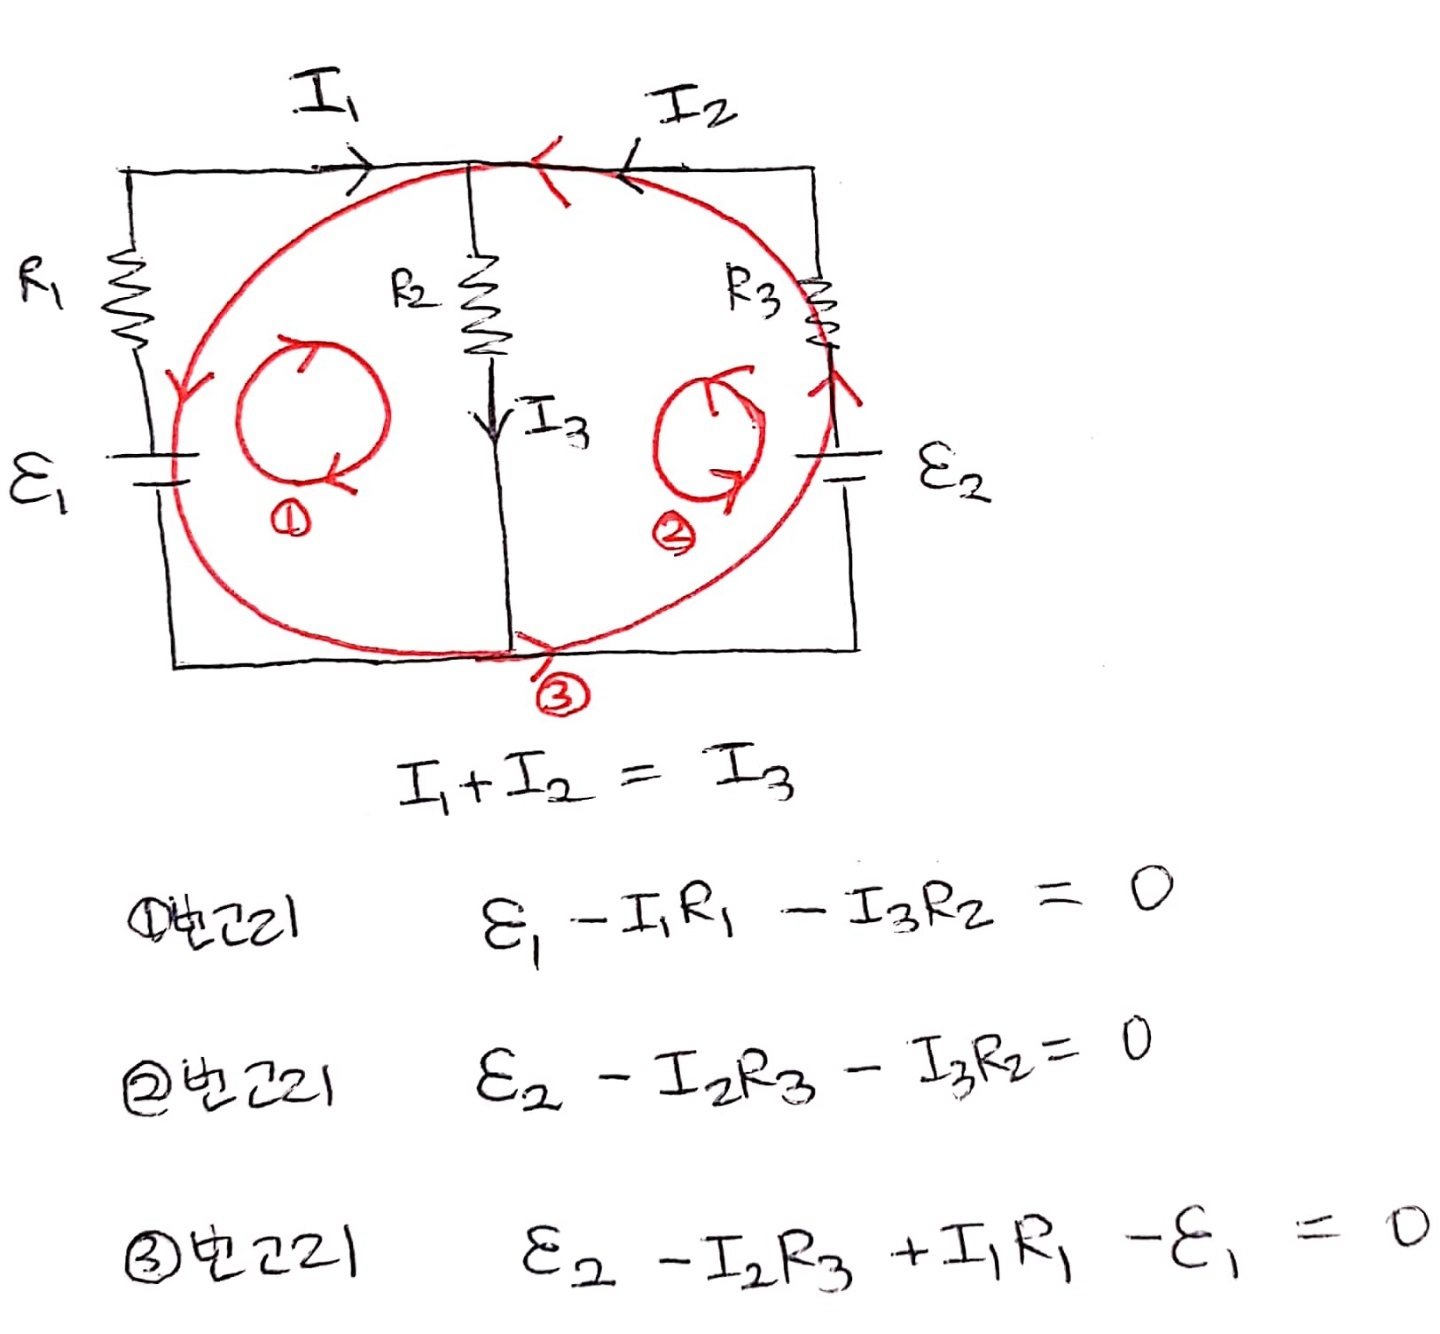 I₁ I₂
R₁ R₂ R₃
I₃
ε₁ ε₂
① ②
③
I₁+I₂ = I₃
①번고리 ε₁ -I₁R₁ - I₃R₂ = 0
②번고리 ε₂ - I₂R₃ - I₃R₂ = 0
③번고리 ε₂ -I₂R₃ +I₁R₁ -ε₁ = 0